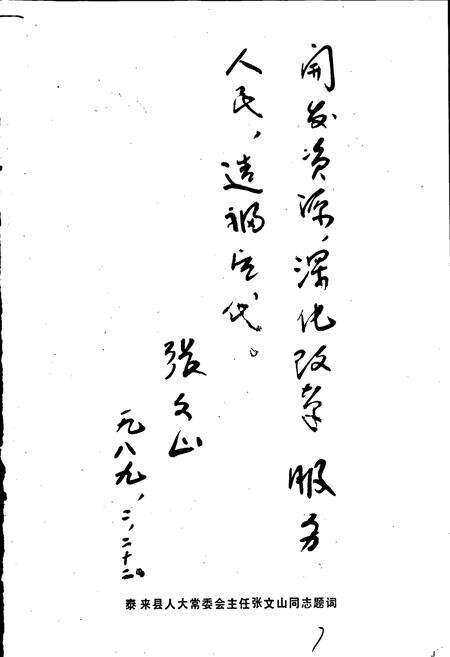 开发资源，深化改革 服务
人民，造福后代。
张文山
一九八九、二、二十二日
泰来县人大常委会主任张文山同志题词